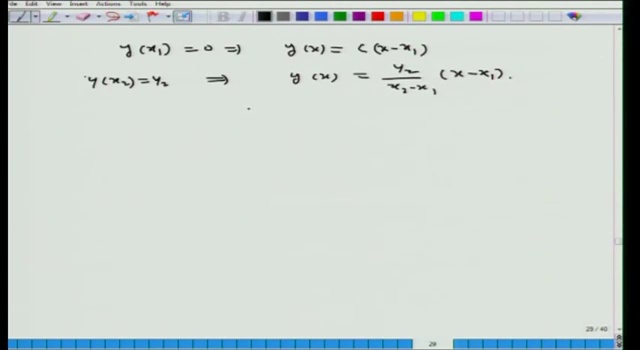 File View Insert Actions Tools Help
y(x₁) = 0 ⇒ y(x) = C(x-x₁)
y(x₂)=y₂ ⇒ y(x) = y₂/(x₂-x₁) (x-x₁).
29 / 40
29